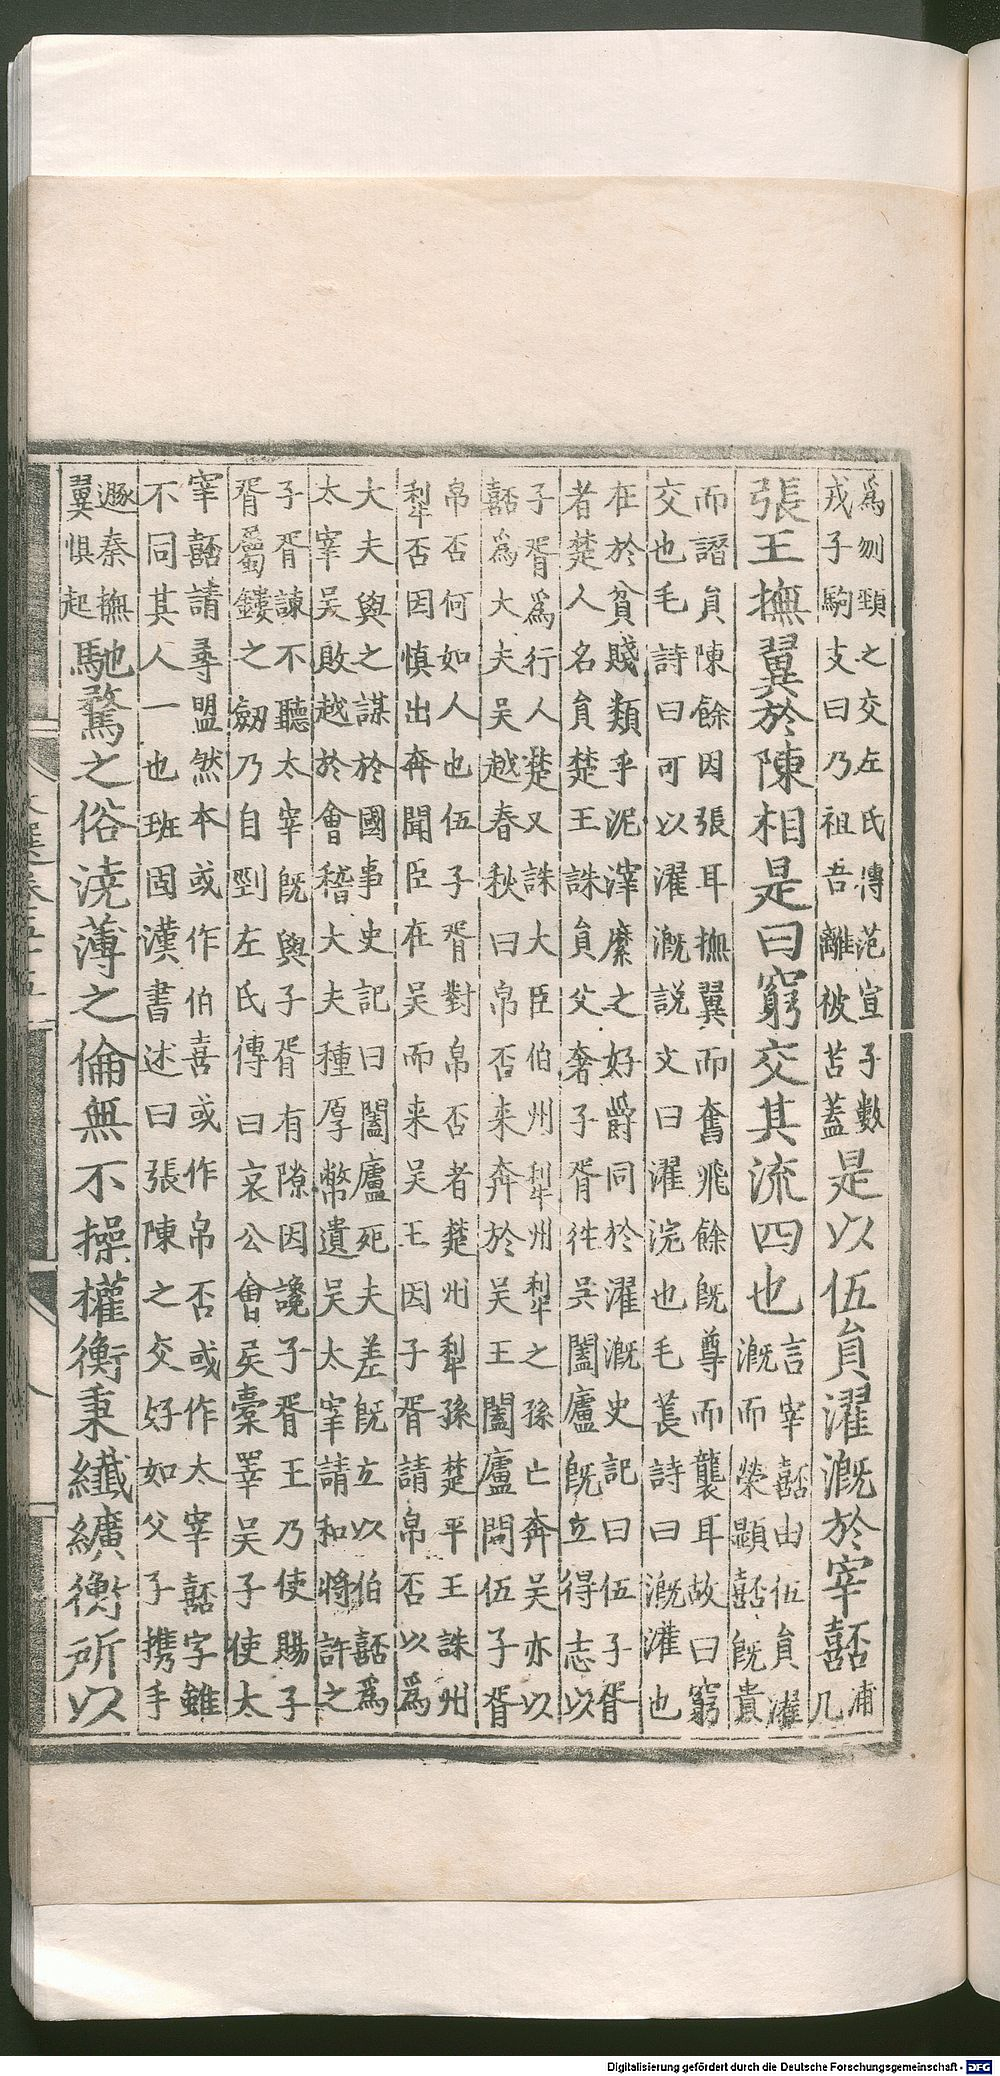 爲刎頸之交左氏傳范宣子數
戎子駒支曰乃祖吾離被苫蓋
是以伍員濯漑於宰嚭
浦
几
張王撫翼於陳相是曰窮交其流四也
言宰嚭由伍員濯
漑而榮顯嚭旣貴
而譖員陳餘因張耳撫翼而奮飛餘旣尊而襲耳故曰窮
交也毛詩曰可以濯漑說文曰濯浣也毛萇詩曰漑灌也
在於貧賤類乎泥滓縻之好爵同於濯漑史記曰伍子胥
者楚人名員楚王誅員父奢子胥往吳闔廬旣立得志以
子胥爲行人楚又誅大臣伯州犁州犁之孫亡奔吳亦以
嚭爲大夫吳越春秋曰帛否来奔於吳王闔廬問伍子胥
帛否何如人也伍子胥對帛否者楚州犁孫楚平王誅州
犁否因慎出奔聞臣在吳而来吳王因子胥請帛否以爲
大夫與之謀於國事史記曰闔廬死夫差旣立以伯嚭爲
太宰吳敗越於會稽大夫種厚幣遺吳太宰請和將許之
子胥諫不聽太宰旣與子胥有隙因讒子胥王乃使賜子
胥屬鏤之劒乃自剄左氏傳曰哀公會矦橐睪吳子使太
宰嚭請尋盟然本或作伯喜或作帛否或作太宰嚭字雖
不同其人一也班固漢書述曰張陳之交好如父子攜手
遯秦撫
翼俱起
馳騖之俗澆薄之倫無不操權衡秉纖纊衡所以
Digitalisierung gefördert durch die Deutsche Forschungsgemeinschaft - DFG